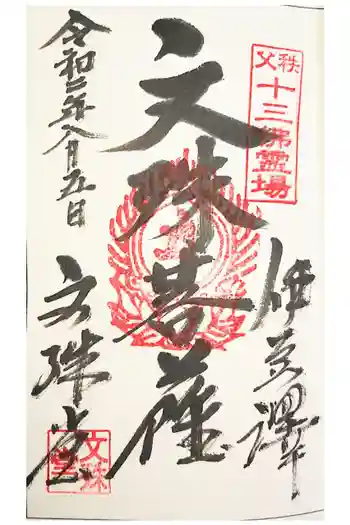 秩父
十三佛霊場
伊豆澤
文殊菩薩
令和二年八月五日
文珠堂
文珠堂